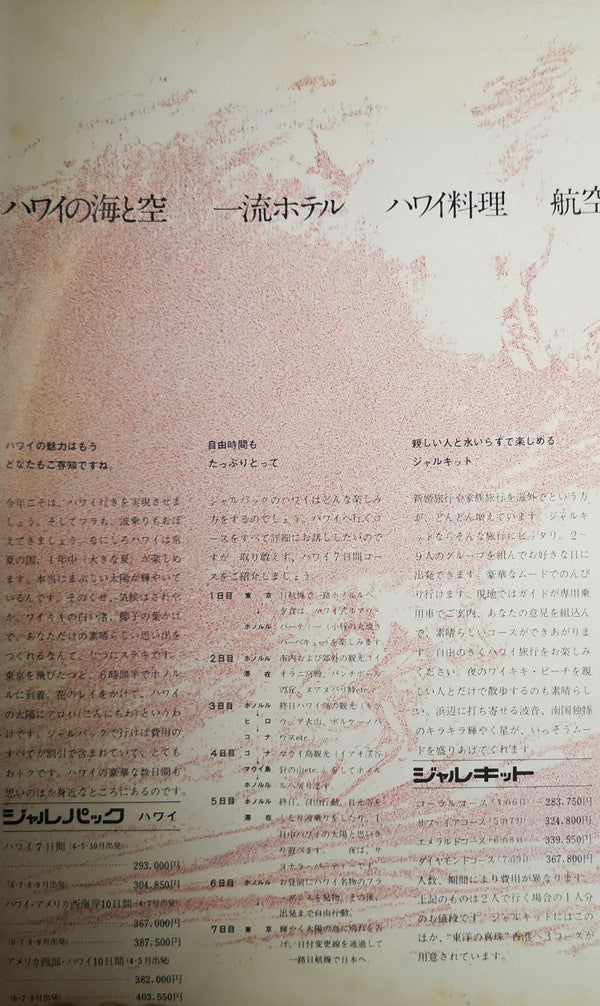 ハワイの海と空 一流ホテル ハワイ料理 航空
ハワイの魅力はもう
どなたもご存知ですね。
今年こそは、ハワイ行きを実現させま
しょう。そしてフラも、波乗りもおぼ
えてきましょう。なにしろハワイは常
夏の国、1年中(大きな夏)が楽しめ
ます。本当にまぶしい太陽が輝やいて
いるんです。そのくせ、気候はさわや
か。ワイキキの白い渚、椰子の葉かげ
で、あなただけの素晴らしい思い出を
つくれるなんて、じつにステキです。
東京を飛びたつと、6時間半でホノル
ルに到着。花のレイをかけて、ハワイ
の太陽にアロハ(こんにちわ)というわ
けです。ジャルパックで行けば費用の
すべてが割引で含まれていて、とても
おトクです。ハワイの豪華な数日間も
思いのほか身近なところにあるのです。
ジャルパック ハワイ
ハワイ7日間(4・5・10月出発)
293,000円
(6・7・8・9月出発) 304,850円
ハワイ・アメリカ西海岸10日間
367,000円
(6・7・8・9月出発) 387,500円
アメリカ西部・ハワイ10日間(4・5月出発)
382,000円
(6・7・8月出発) 403,550円
自由時間も
たっぷりとって
ジャルパックのハワイはどんな楽しみ
方をするのでしょう。ハワイへ行くコ
ースをすべて詳細にお話ししたいので
すが 取り敢えず、ハワイ7日間コー
スをご紹介しましょう。
1日目 東京 日航機で一路ホノルルへ。
夕食は、ハワイ式ルアウ・
ホノルル パーティー(小豚の丸焼き
バーベキュー)を楽しみます
2日目 ホノルル 市内および郊外の観光(イ
滞在 オラニ宮殿、パンチボール
の丘、ヌアヌパリ峠etc.)
3日目 ホノルル 終日ハワイ島の観光(キラ
ヒロ ウェア火山、ボルケーノハ
コナ ウスetc.
4日目 コナ マウイ島観光(イアオ渓谷
マウイ島 針の山etc.)をしてホノル
ホノルル ルへ戻ります。
5日目 ホノルル 終日、自由行動。日光浴を
滞在 したり波乗りをしたり、1
日中ハワイの太陽と思いき
り遊べます。 夜は、サ
ヨナラ・パーティーです
6日目 ホノルル お昼前にハワイ名物のフラ
・ダンスを見物。その後、
出発まで自由行動。
7日目 東京 輝やく太陽の島に別れを告
げ、日付変更線を通過して
一路日航機で日本へ。
親しい人と水いらずで楽しめる
ジャルキット
新婚旅行や家族旅行を海外でという方
が、どんどん増えています。ジャルキ
ットならそんな旅行にピッタリ。2〜
9人のグループを組んでお好きな日に
出発できます。豪華なムードでのんび
り行けます。現地ではガイドが専用乗
用車でご案内、あなたの意見を組込ん
で、素晴らしいコースができあがりま
す。自由のきくハワイ旅行をお楽しみ
ください。夜のワイキキ・ビーチを親
しい人とだけで散歩するのも素晴らし
い。浜辺に打ち寄せる波音、南国独特
のキラキラ輝やく星が、いっそうムー
ドを盛りあげてくれます。
ジャルキット
コーラルコース 283,750円
サファイアコース 324,800円
エメラルドコース 339,550円
ダイヤモンドコース 367,800円
人数、期間により費用が異なります。
上記のものは2人で行く場合の1人分
のお値段です。ジャルキットにはこの
ほか、“東洋の真珠”香港へ3コースが
用意されています。